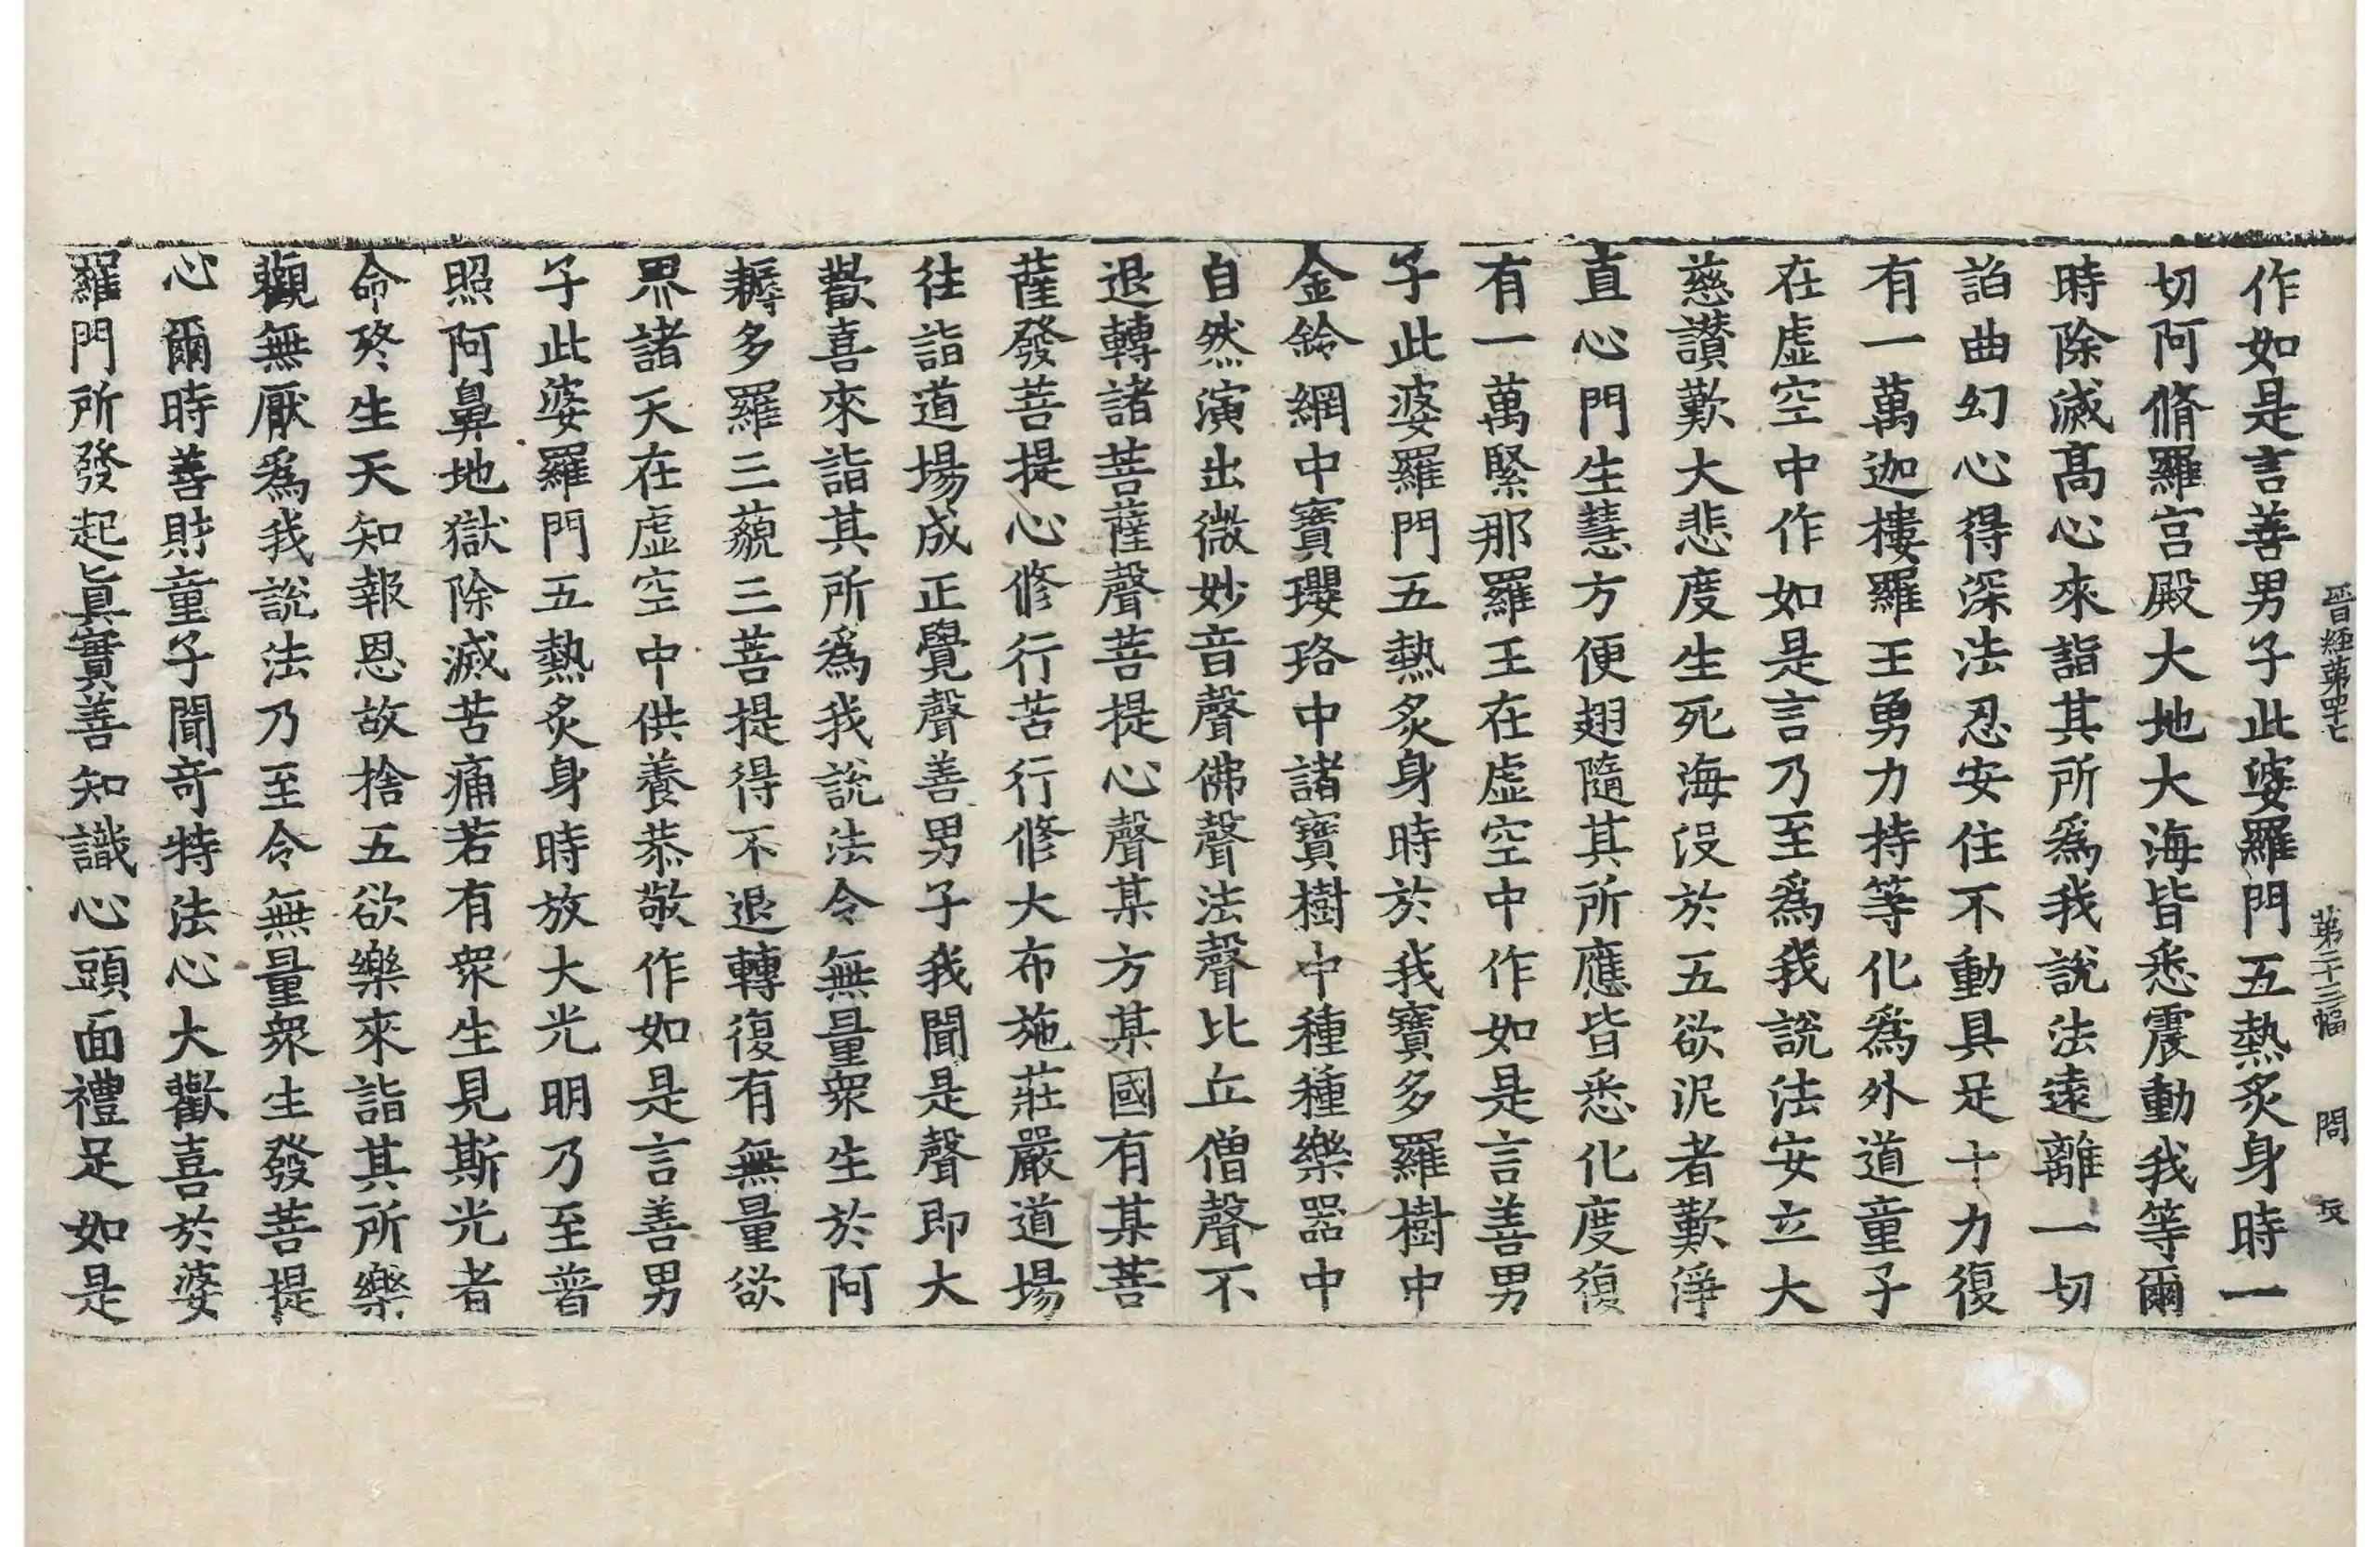 晉經第四十七 第二十三幅 問
作如是言善男子此婆羅門五熱炙身時一
切阿脩羅宮殿大地大海皆悉震動我等爾
時除滅髙心來詣其所爲我說法遠離一切
諂曲幻心得深法忍安住不動具足十力復
有一萬迦樓羅王勇力持等化爲外道童子
在虛空中作如是言乃至爲我說法安立大
慈讃歎大悲度生死海没於五欲泥者歎淨
直心門生慧方便翅隨其所應皆悉化度復
有一萬緊那羅王在虛空中作如是言善男
子此婆羅門五熱炙身時於我寶多羅樹中
金鈴網中寶瓔珞中諸寶樹中種種樂器中
自然演出微妙音聲佛聲法聲比丘僧聲不
退轉諸菩薩聲菩提心聲某方某國有某菩
薩發菩提心修行苦行修大布施莊嚴道場
往詣道場成正覺聲善男子我聞是聲即大
歡喜來詣其所爲我說法令無量衆生於阿
耨多羅三藐三菩提得不退轉復有無量欲
界諸天在虛空中供養恭敬作如是言善男
子此婆羅門五熱炙身時放大光明乃至普
照阿鼻地獄除滅苦痛若有衆生見斯光者
命終生天知報恩故捨五欲樂來詣其所樂
觀無厭爲我說法乃至令無量衆生發菩提
心爾時善財童子聞竒特法心大歡喜於婆
羅門所發起眞實善知識心頭面禮足如是